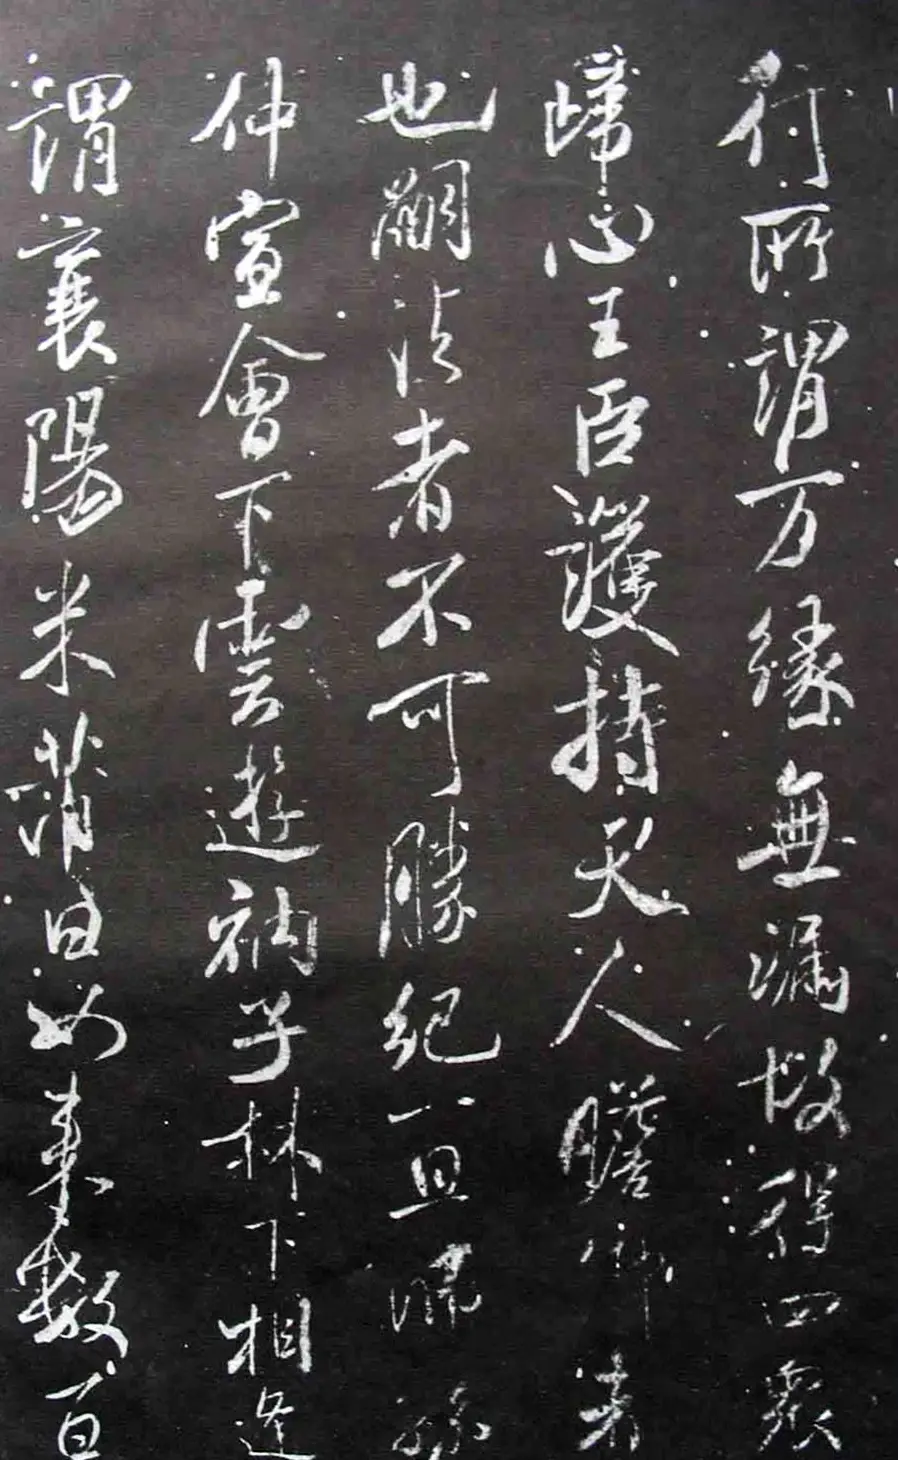 行所謂万緣無漏故得四衆
歸心王臣護持天人瞻仰者
也嗣法者不可勝紀一旦派孫
仲宣會下雲遊衲子林下相逢
謂襄陽米芾曰如来數百